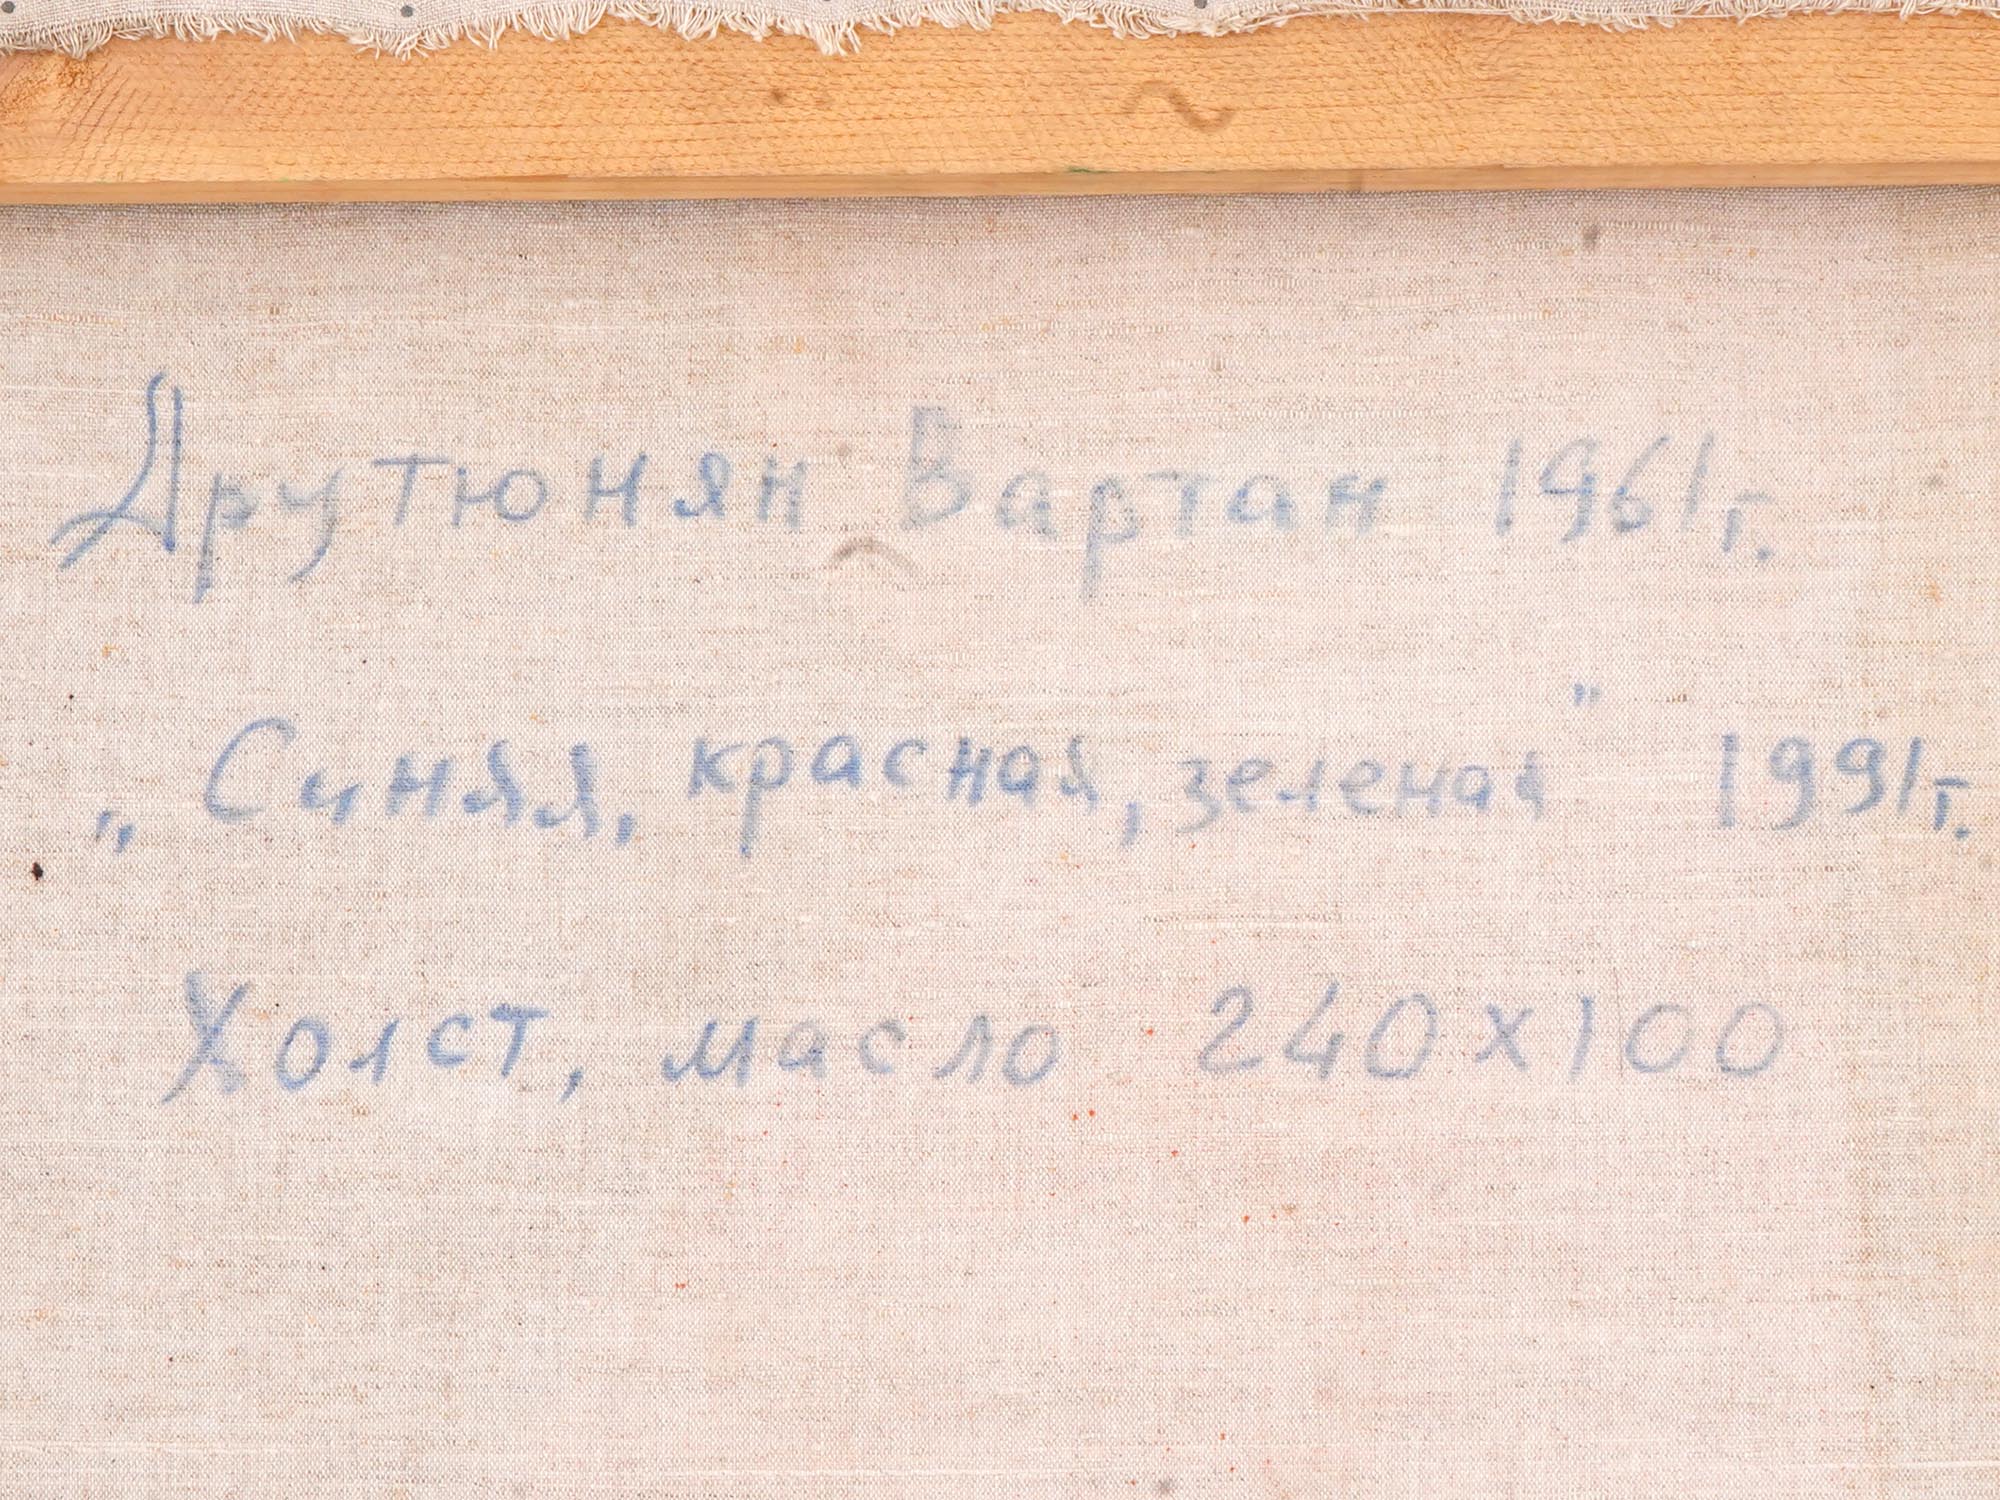 Арутюнян Вартан 1961г.
„Синяя, красная, зеленая" 1991г.
Холст, масло 240х100